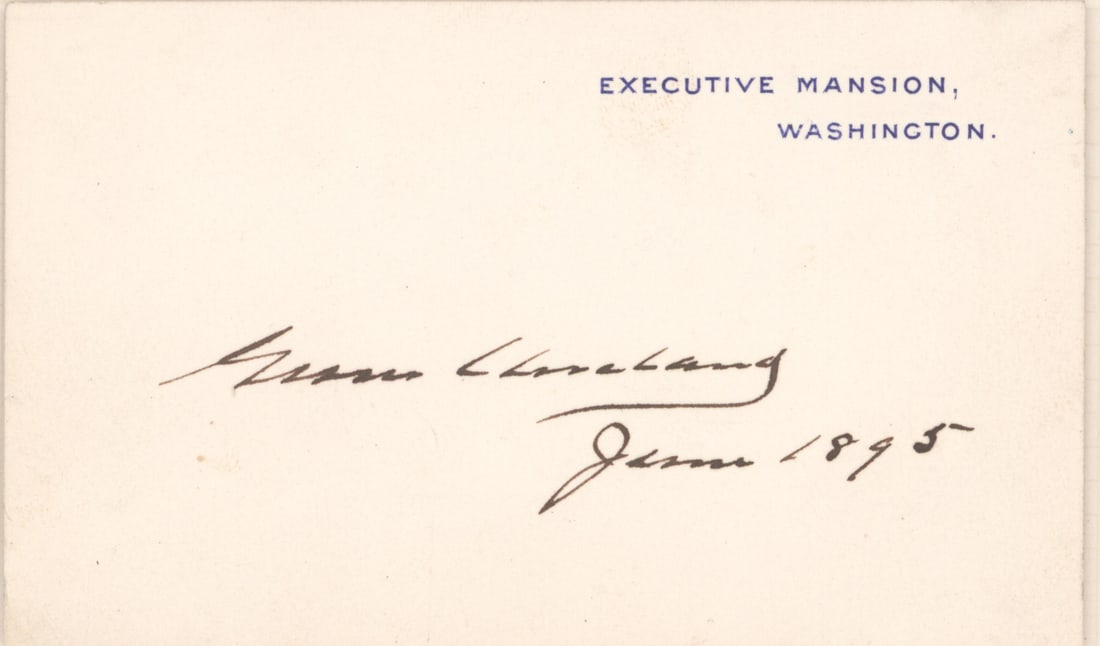 EXECUTIVE MANSION,
WASHINGTON.
Grover Cleveland
June 1895